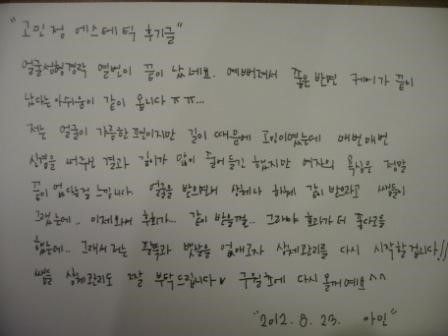 "고민정 에스테틱 후기글"
얼굴성형경락 열번이 끝이 났네요. 예뻐져서 좋은 반면 케어가 끝이
났다는 아쉬움이 같이 옵니다 ㅠㅠ...
저는 얼굴이 갸름한 편이지만 길이 때문에 고민이였는데 매번매번
신경을 써주신 결과 길이가 많이 줄어들긴 했지만 여자의 욕심은 정말
끝이 없다는걸 느낍니다. 얼굴을 받으면서 상체나 하체 같이 받으라고 쌤들이
그랬는데.. 이제와서 후회가... 같이 받을껄.. 그래야 효과가 더 좋다고들
했는데.. 그래서 저는 팔뚝과 뱃살을 없애고자 상체관리를 다시 시작할겁니다!!
쌤들 상체관리도 잘 부탁드립니다♥ 구월초에 다시 올께예요^^
"2012. 8. 23. 아인"